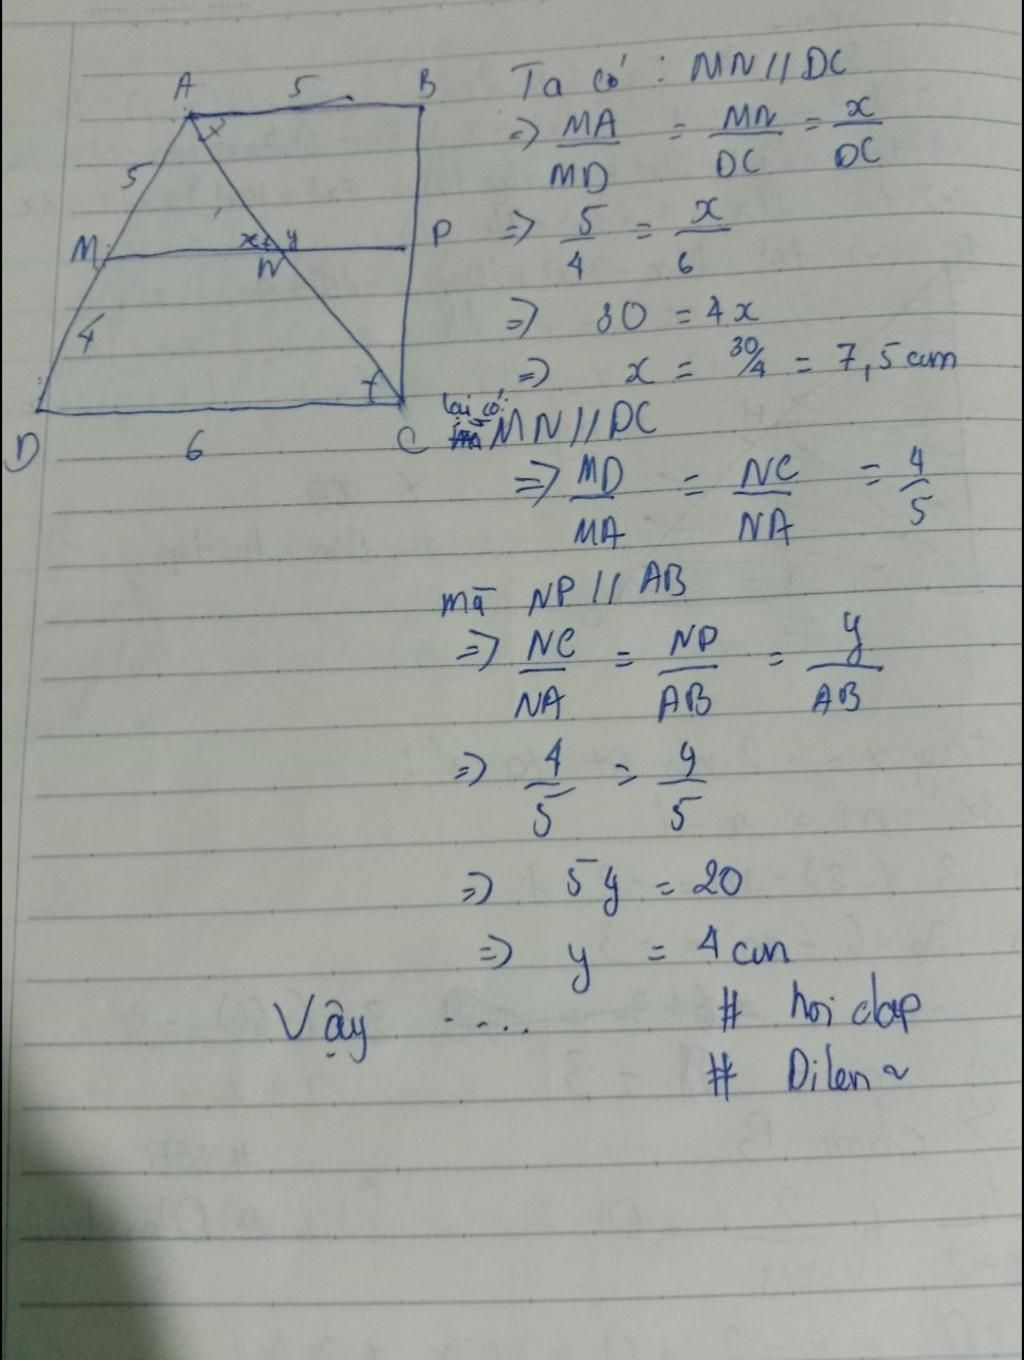 A 5 B
5
M x y P
N
4
D 6 C
Ta có : MN // DC
=> MA/MD = MN/DC = x/DC
=> 5/4 = x/6
=> 30 = 4x
=> x = 30/4 = 7,5 cm
lại có: MN // DC
=> MD/MA = NC/NA = 4/5
mà NP // AB
=> NC/NA = NP/AB = y/AB
=> 4/5 = y/5
=> 5y = 20
=> y = 4 cm
Vậy ....
# hoi dap
# Dilen ~